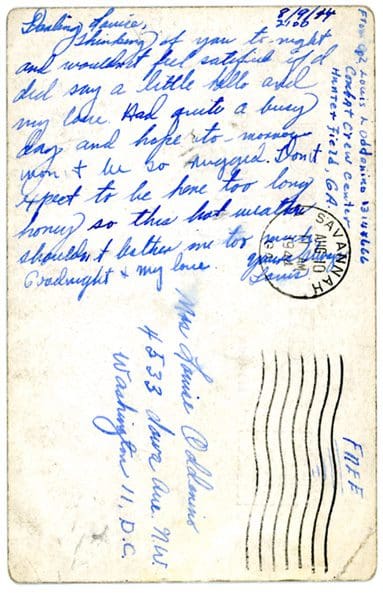 8/9/44
2100
Darling Louise,
Thinking of you to-night
and wouldn't feel satisfied if I
did say a little hello and
my love. Had quite a busy
day and hope to-morrow
won't be so rugged. Don't
expect to be here too long
honey so this hot weather
shouldn't bother me too much
Goodnight & my love
yours always
Louis
From Cpl Louis L. Oddenino
Combat Crew Center
Hunter Field, GA.
SAVANNAH
AUG 10
9 AM
FREE
Mrs Louise Oddenino
4533 Iowa Ave. N.W.
Washington 11, D.C.